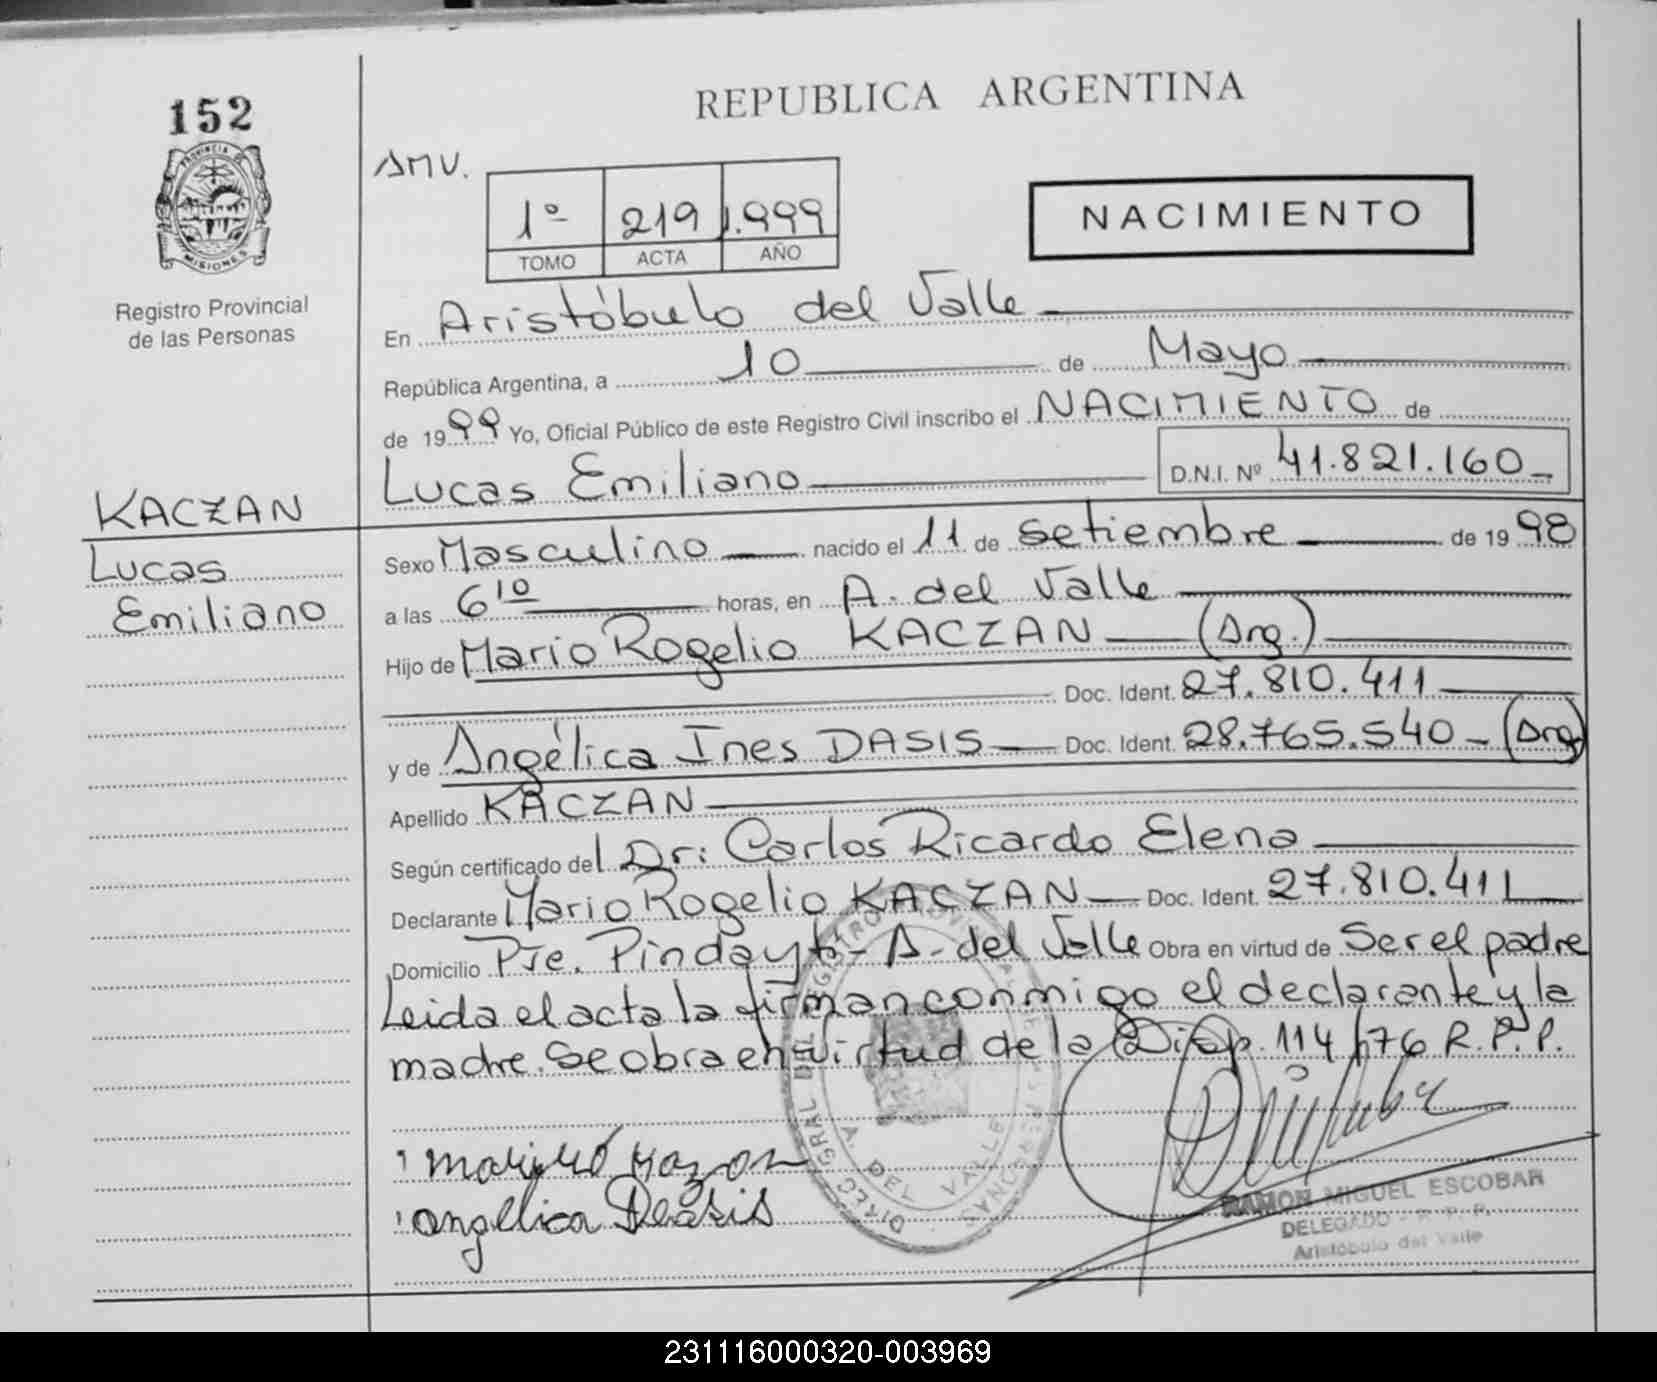 152
PROVINCIA DE
MISIONES
Registro Provincial
de las Personas
KACZAN
Lucas
Emiliano
REPUBLICA ARGENTINA
AMV.
1º 219 1.999
TOMO ACTA AÑO
NACIMIENTO
En Aristóbulo del Valle
República Argentina, a 10 de Mayo
de 1999 Yo, Oficial Público de este Registro Civil inscribo el NACIMIENTO de
Lucas Emiliano D.N.I. Nº 41.821.160
Sexo Masculino nacido el 11 de setiembre de 1998
a las 6 10 horas, en A. del Valle
Hijo de Mario Rogelio KACZAN (Arg.)
Doc. Ident. 27.810.411
y de Angélica Ines DASIS Doc. Ident. 28.765.540 - (Arg)
Apellido KACZAN
Según certificado del Dr: Carlos Ricardo Elena
Declarante Mario Rogelio KACZAN Doc. Ident. 27.810.411
Domicilio Pje. Pindayti - A. del Valle Obra en virtud de Ser el padre
Leida el acta la firman conmigo el declarante y la
madre. Se obra en virtud de la Disp. 114/76 R.P.P.
angelica Deasis
A. DEL VALLE
RAMON MIGUEL ESCOBAR
DELEGADO - R. P. P.
Aristóbulo del Valle
231116000320-003969